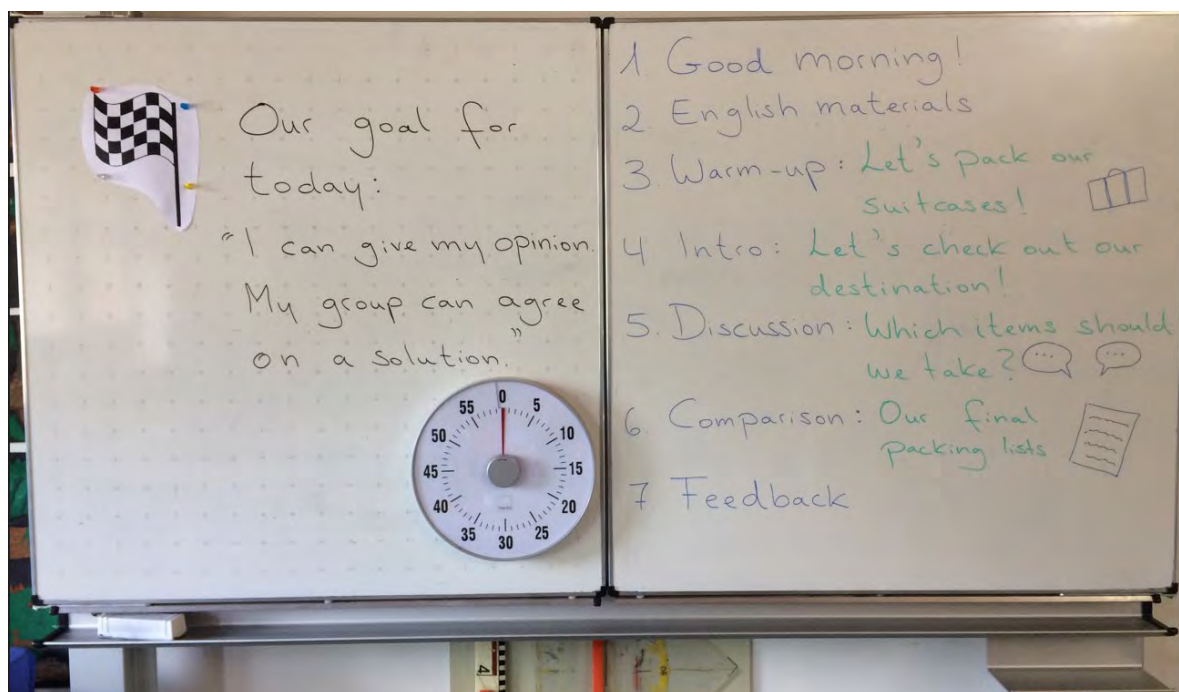 Our goal for
today:
"I can give my opinion.
My group can agree
on a solution."
0
5
10
15
20
25
30
35
40
45
50
55
1 Good morning!
2. English materials
3. Warm-up: Let's pack our
suitcases!
4 Intro: Let's check out our
destination!
5. Discussion: Which items should
we take?
6. Comparison: Our final
packing lists
7 Feedback
4